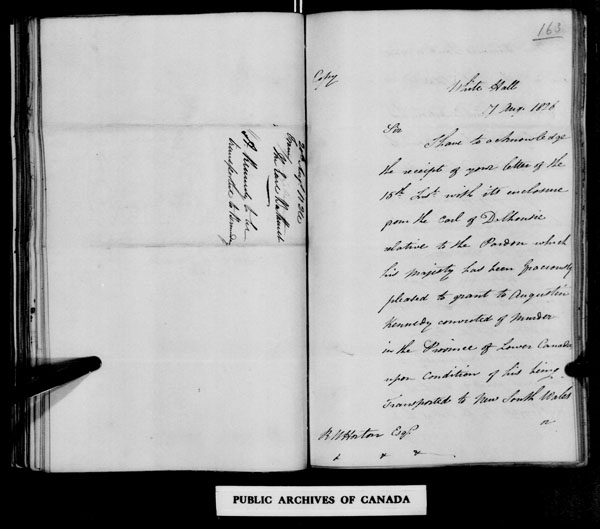 163
Copy
White Hall
17 Aug. 1826
Sir
I have to acknowledge
the receipt of your letter of the
15th Inst. with its enclosure
from the Earl of Dalhousie
relative to the Pardon which
his Majesty has been Graciously
pleased to grant to Augustin
Kennedy convicted of Murder
in the Province of Lower Canada
upon Condition of his being
Transported to New South Wales
R W Horton Esq.
& & &
A. Kennedy to be
transported to
PUBLIC ARCHIVES OF CANADA